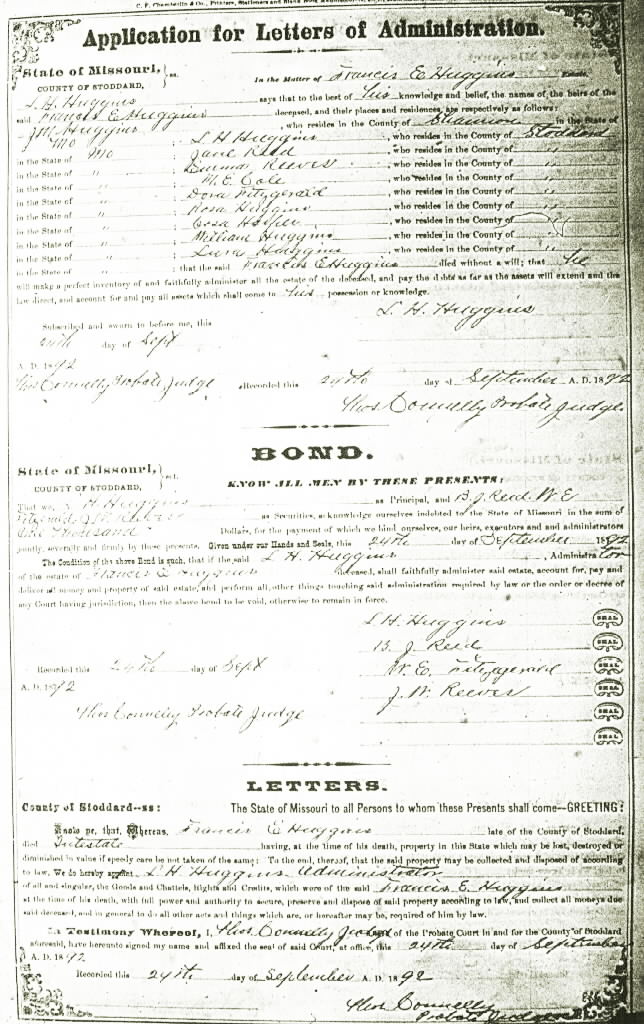 C. F. Chamberlin & Co., Printers, Stationers and Blank Book
Application for Letters of Administration.
State of Missouri, } ss. In the Matter of Francis E Huggins Estate.
COUNTY OF STODDARD,
L. H. Huggins says that to the best of his knowledge and belief, the names of the heirs of the
said Francis E Huggins deceased, and their places and residences, are respectively as follows:
J M Huggins , who resides in the County of Shannon in the State of
Mo ; L H Huggins , who resides in the County of Stoddard
in the State of Mo ; Jane Reed , who resides in the County of "
in the State of " ; Reeves , who resides in the County of "
in the State of " ; M. E. Cole , who resides in the County of "
in the State of " ; Dora Fitzgerald , who resides in the County of "
in the State of " ; Rosa Huggins , who resides in the County of "
in the State of " ; , who resides in the County of
in the State of " ; William Huggins , who resides in the County of "
in the State of " ; Huggins , who resides in the County of "
in the State of " ; that the said Francis E Huggins died without a will; that he
will make a perfect inventory of and faithfully administer all the estate of the deceased, and pay the debts as far as the assets will extend and the
law direct, and account for and pay all assets which shall come to his possession or knowledge.
L. H. Huggins
Subscribed and sworn to before me, this
24th day of Sept
A. D. 1892
Thos Connelly Probate Judge Recorded this 24th day of September A. D. 1892
Thos Connelly Probate Judge
BOND.
State of Missouri, } ss.
COUNTY OF STODDARD, KNOW ALL MEN BY THESE PRESENTS:
That we, L H Huggins as Principal, and B. J. Reed W E
Fitzgerald J W Reeves as Securities, acknowledge ourselves indebted to the State of Missouri in the sum of
One Thousand Dollars, for the payment of which we bind ourselves, our heirs, executors and and administrators
jointly, severally and firmly by these presents. Given under our Hands and Seals, this 24th day of September 1892
The Condition of the above Bond is such, that if the said L. H. Huggins , Administrator
of the estate of Francis E Huggins deceased, shall faithfully administer said estate, account for, pay and
deliver all money and property of said estate, and perform all other things touching said administration required by law or the order or decree of
any Court having jurisdiction, then the above bond to be void, otherwise to remain in force.
L. H. Huggins SEAL
B. J. Reed SEAL
Recorded this 24th day of Sept W. E. Fitzgerald SEAL
A. D. 1892 J. W. Reeves SEAL
Thos Connelly Probate Judge SEAL
SEAL
LETTERS.
County of Stoddard--ss: The State of Missouri to all Persons to whom these Presents shall come—GREETING:
Know ye, that, Whereas, Francis E Huggins late of the County of Stoddard,
died Intestate having, at the time of his death, property in this State which may be lost, destroyed or
diminished in value if speedy care be not taken of the same: To the end, thereof, that the said property may be collected and disposed of according
to law, We do hereby appoint L H Huggins Administrator
of all and singular, the Goods and Chattels, Rights and Credits, which were of the said Francis E. Huggins
at the time of his death, with full power and authority to secure, preserve and dispose of said property according to law, and collect all moneys due
said deceased, and in general to do all other acts and things which are, or hereafter may be, required of him by law.
In Testimony Whereof, I, Thos Connelly Judge of the Probate Court in and for the County of Stoddard
aforesaid, have hereunto signed my name and affixed the seal of said Court, at office, this 24th day of September
A. D. 1892
Recorded this 24th day of September A. D. 1892
Thos Connelly
Probate Judge